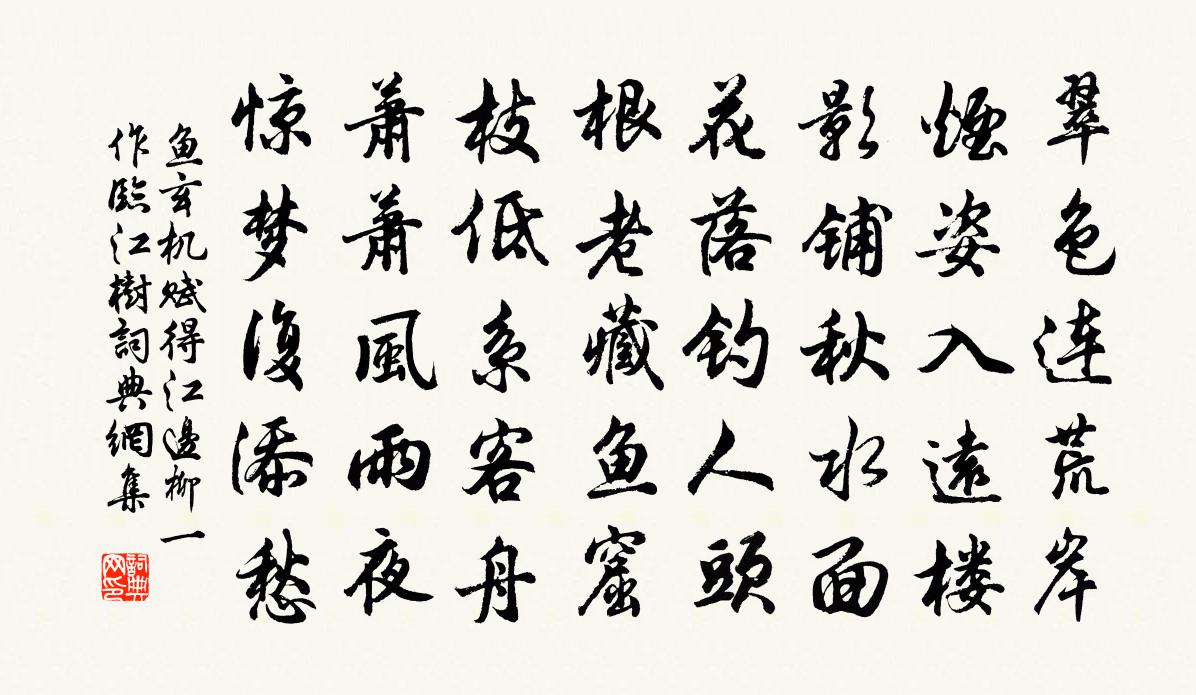 翠色连荒岸
煙姿入遠楼
影铺秋水面
花落钓人頭
根老藏鱼窟
枝低系客舟
萧萧風雨夜
惊梦復添愁
鱼玄机赋得江邊柳一
作臨江樹詞典網集
詞典网印